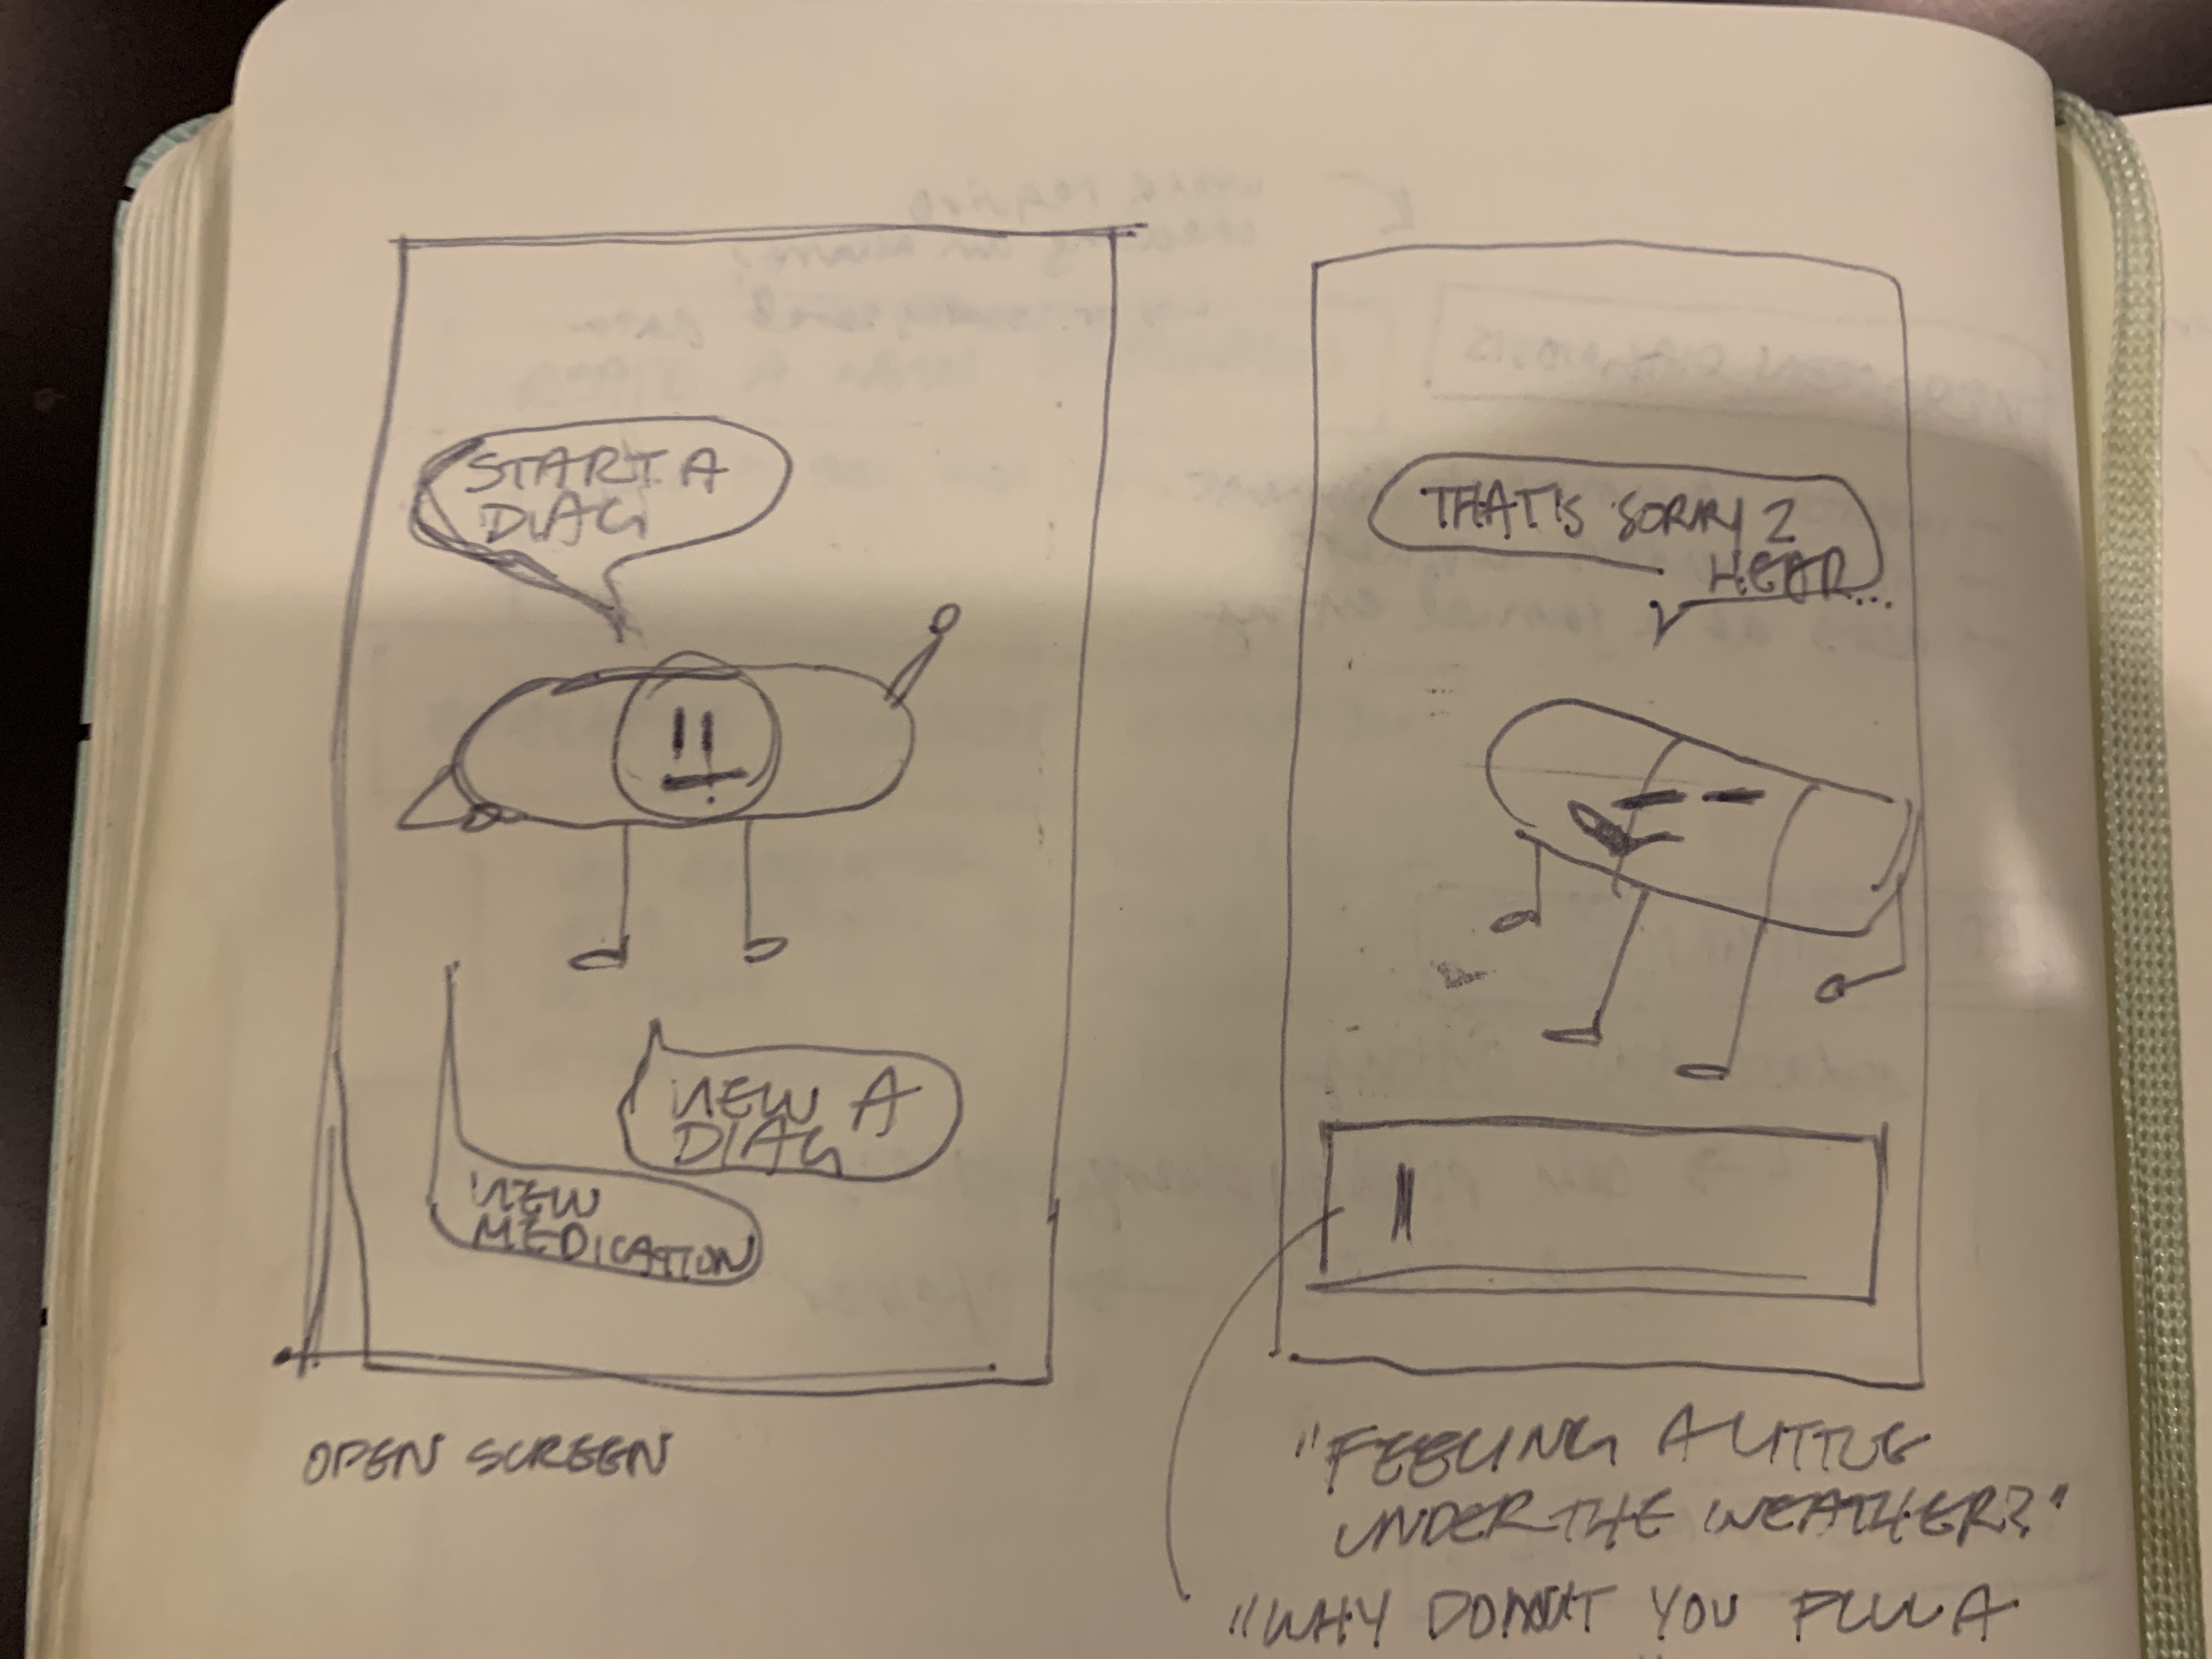 START A
DIAG
VIEW A
DIAG
VIEW
MEDICATION
OPEN SCREEN
THAT'S SORRY 2
HEAR...
"FEELING A LITTLE
UNDER THE WEATHER?"
"WHY DON'T YOU